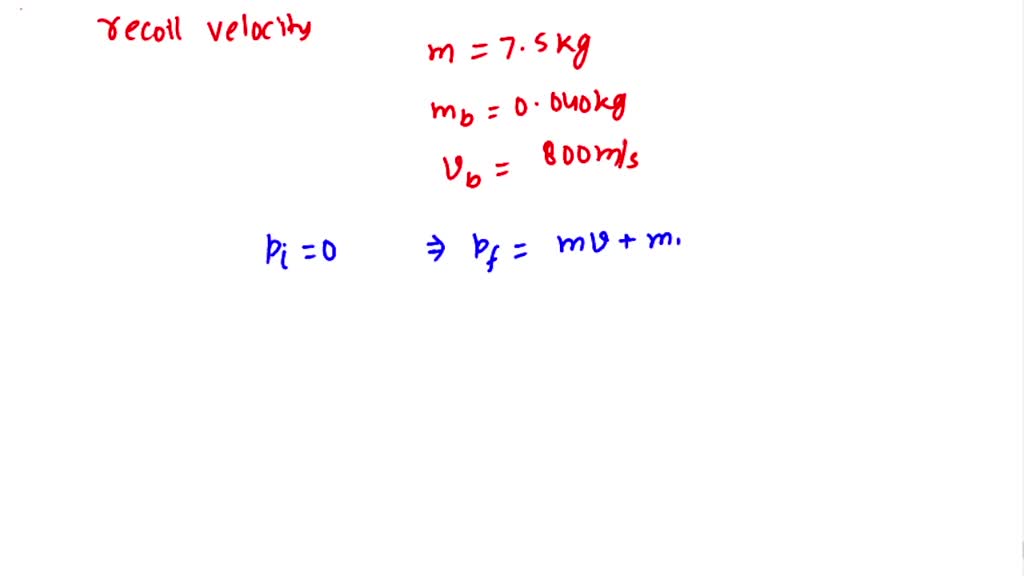 recoil velocity
m = 7.5kg
m_b = 0.040kg
v_b = 800m/s
p_i = 0 ⇒ p_f = mv + m.